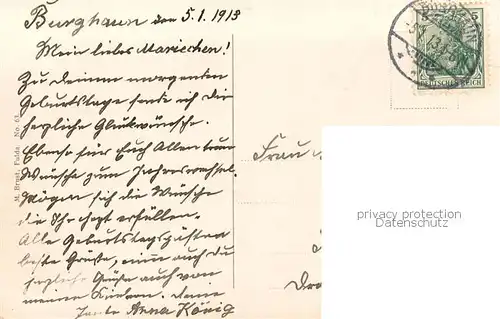 Burghaun den 5.1.1913
Mein liebes Mariechen!
Zu Deinem morgenten
Geburtstage sende ich die
herzliche Glükwünsche.
Ebenso für Euch Allen
Wünsche zum Jahreswechsel.
Mögen sich die Wünsche
die Ihr hegt erfüllen.
Alle Geburtstagsgästen
beste Grüße, wie auch du
herzliche Grüße auch von
meinen Kindern. Deine
Tante Anna König
M. Ernst, Fulda. No. 6
Frau
DEUTSCHES REICH
privacy protection
www.oldthing.de